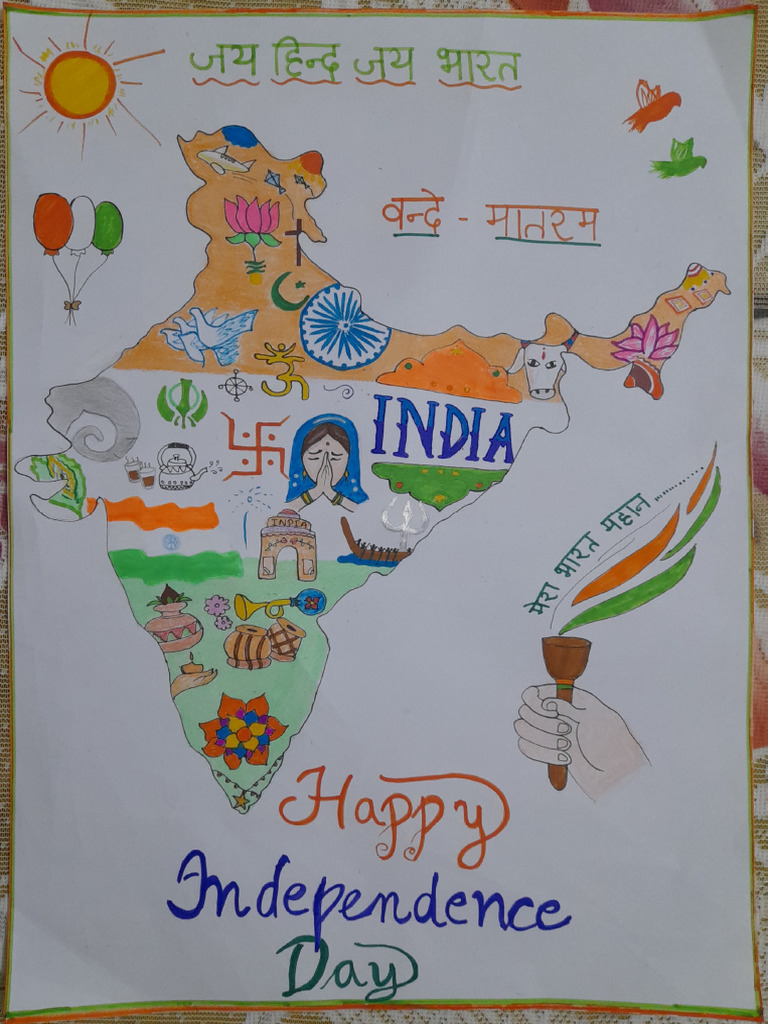 जय हिन्द जय भारत
वन्दे - मातरम
INDIA
INDIA
मेरा भारत महान
Happy
Independence
Day